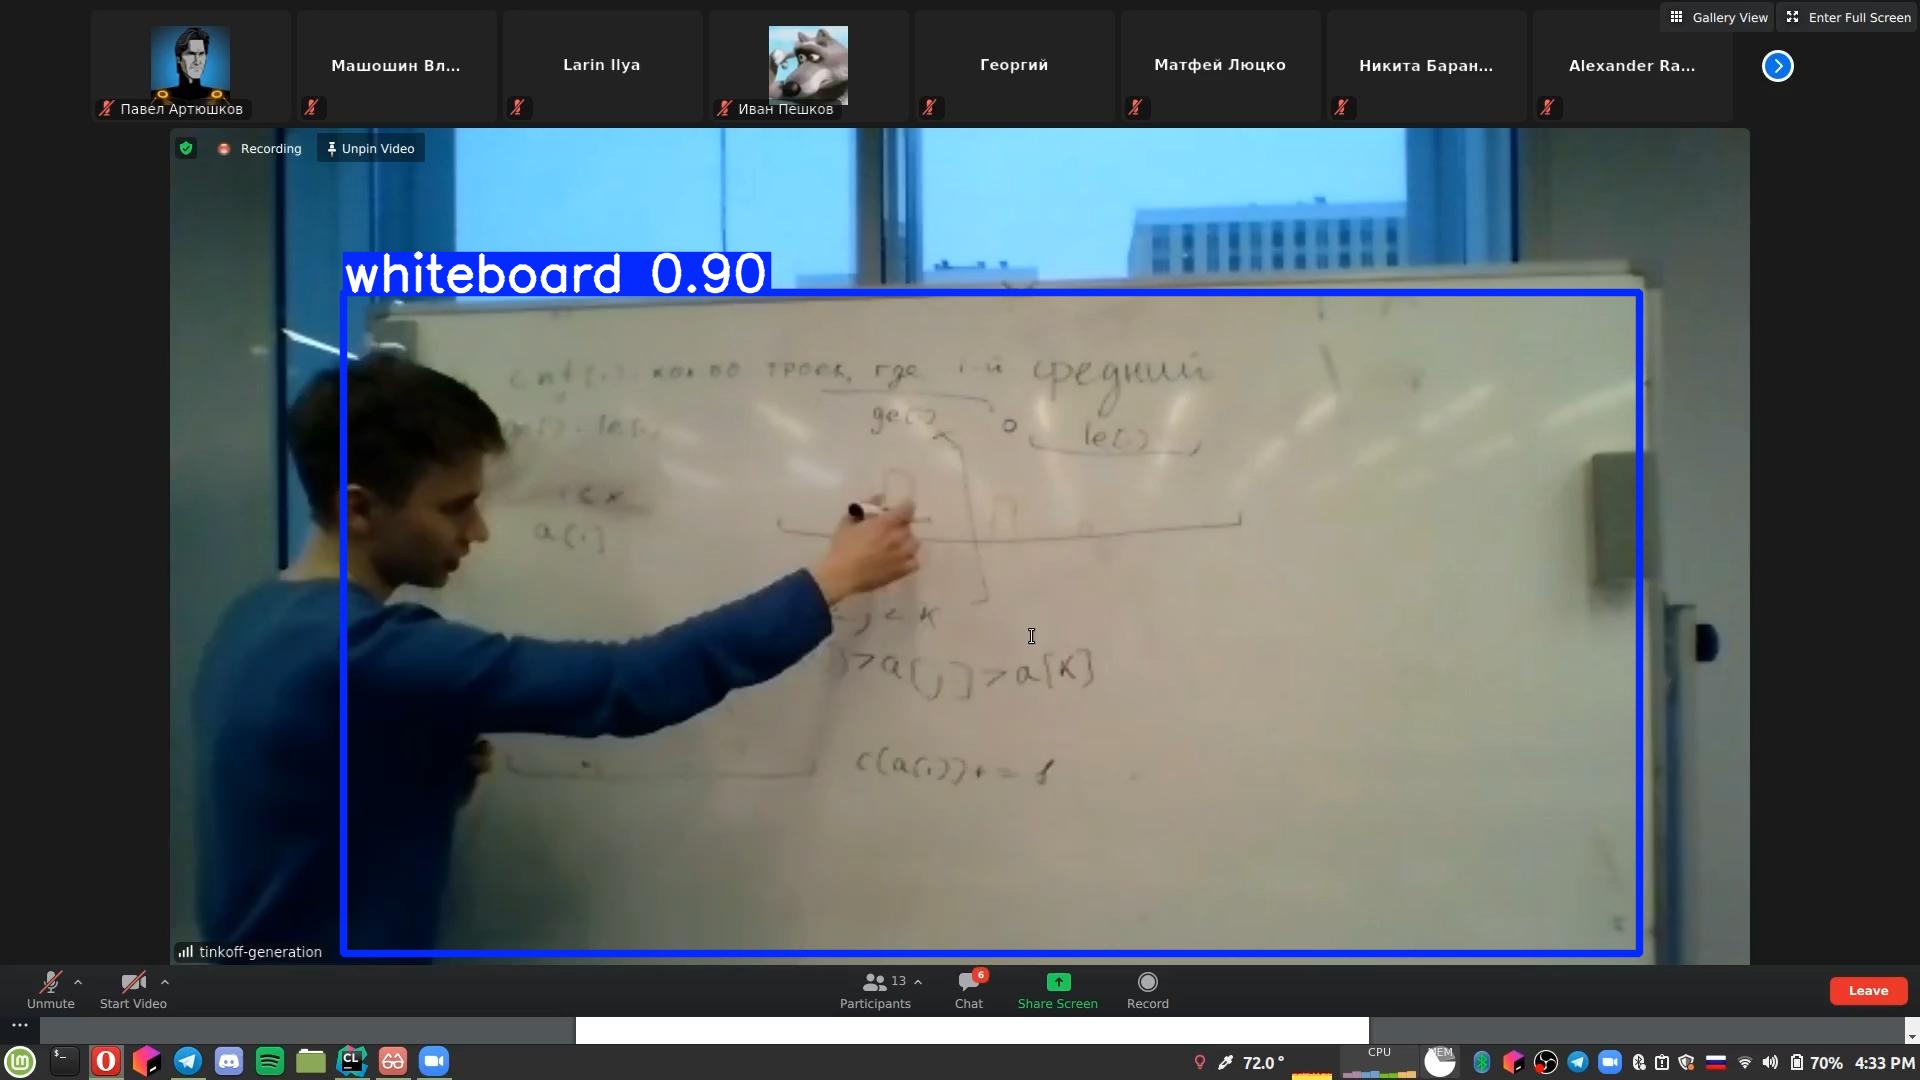 Gallery View
Enter Full Screen
Павел Артюшков
Машошин Вл...
Larin Ilya
Иван Пешков
Георгий
Матфей Люцко
Никита Баран...
Alexander Ra...
Recording
Unpin Video
whiteboard 0.90
cnt(i) - кол во троек, где i-й средний
ge(i) · le(i)
ge(i)
le(i)
a[i]
< j < k
> a[j] > a[k]
c(a(i)) += 1
tinkoff-generation
Unmute
Start Video
Participants
13
Chat
6
Share Screen
Record
Leave
CL
72.0°
CPU
MEM
70%
4:33 PM